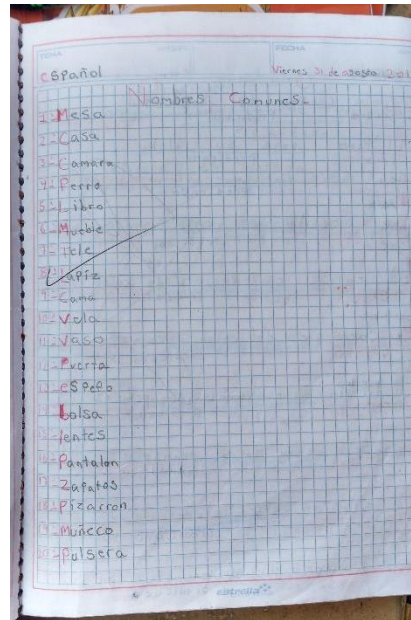 TEMA
FECHA
Español
Viernes 31 de agosto
Nombres Comunes.
1-Mesa
2-Casa
3-Camara
4-Perro
5-Libro
6-Mueble
7-Tele
8-Lapiz
9-Cama
10-Vela
11-Vaso
12-Puerta
13-espejo
14-bolsa
15-lentes
16-Pantalon
17-Zapatos
18-Pizarron
19-Muñeco
20-Pulsera
estrella